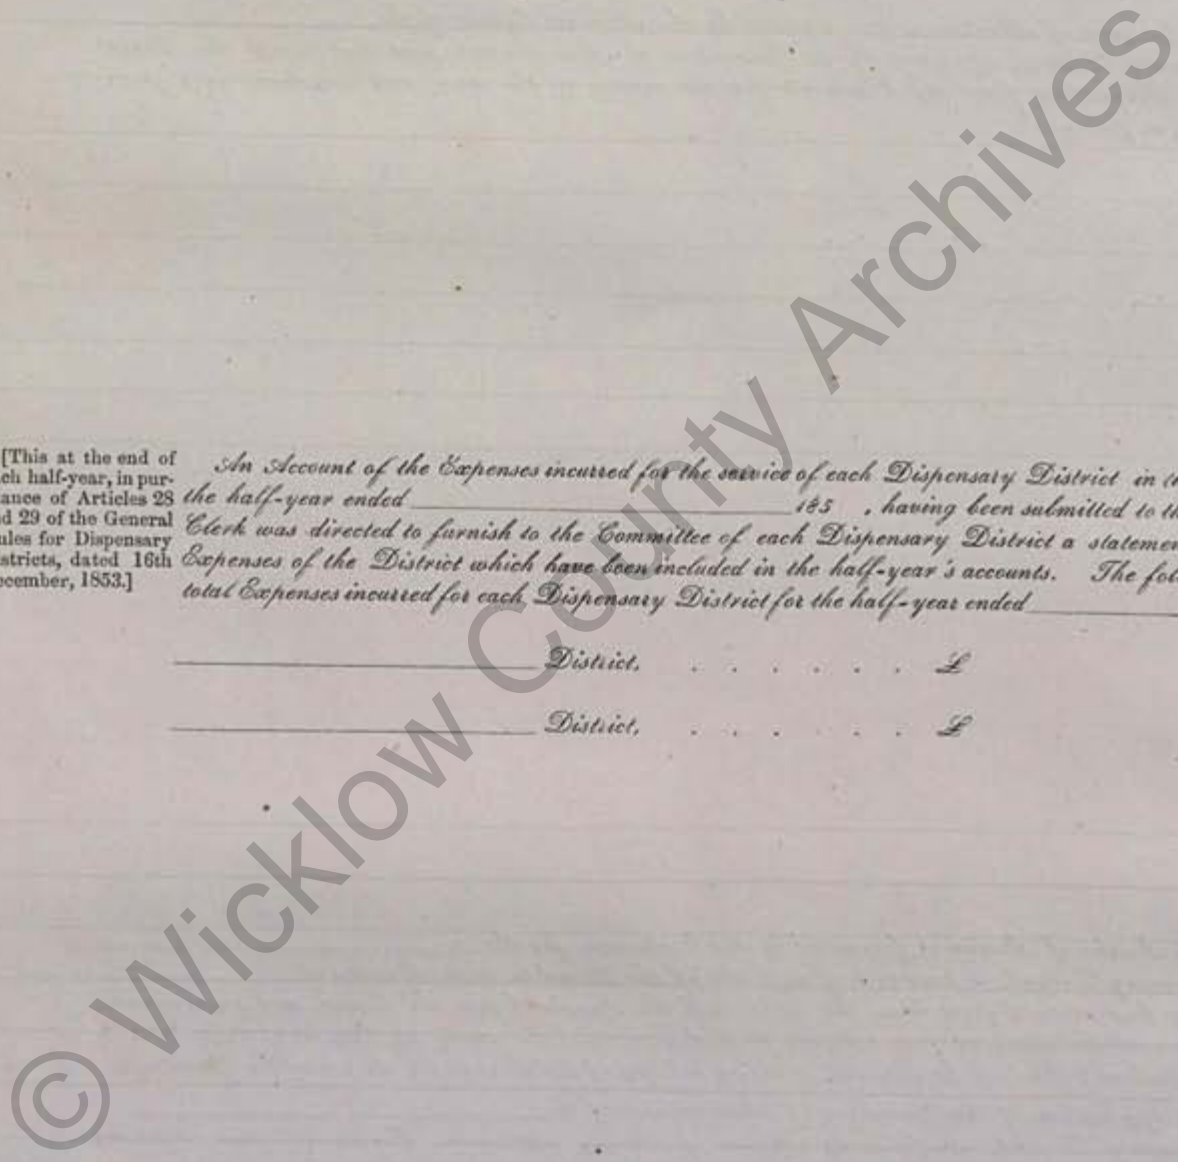 [This at the end of
ch half-year, in pur-
ance of Articles 28
d 29 of the General
ules for Dispensary
stricts, dated 16th
ecember, 1853.]
An Account of the Expenses incurred for the service of each Dispensary District in
the half-year ended 185 , having been submitted to th
Clerk was directed to furnish to the Committee of each Dispensary District a statemen
Expenses of the District which have been included in the half-year's accounts. The fol
total Expenses incurred for each Dispensary District for the half-year ended
District, . . . . . . £
District, . . . . . . £
© Wicklow County Archives